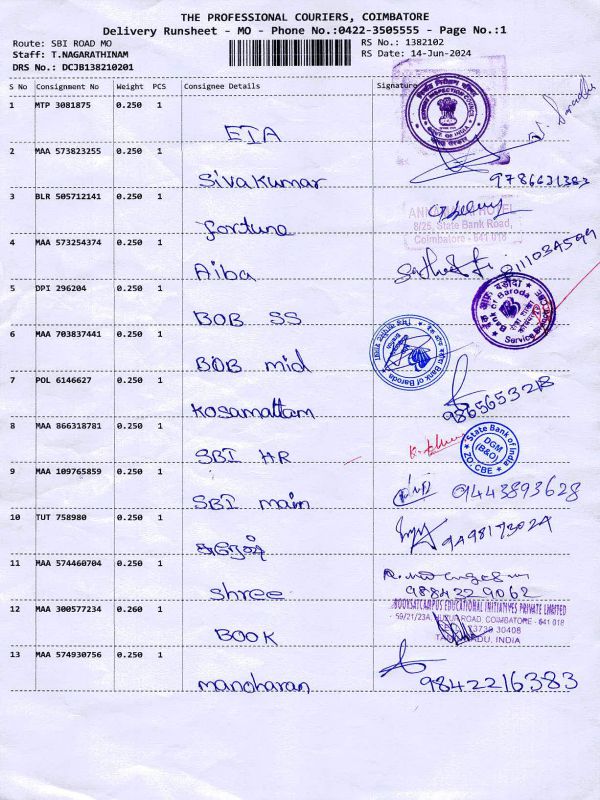 THE PROFESSIONAL COURIERS, COIMBATORE
Delivery Runsheet - MO - Phone No.:0422-3505555 - Page No.:1
Route: SBI ROAD MO RS No.: 1382102
Staff: T.NAGARATHINAM RS Date: 14-Jun-2024
DRS No.: DCJB138210201
S No Consignment No Weight PCS Consignee Details Signature
1 MTP 3081875 0.250 1
EIA
2 MAA 573823255 0.250 1
Sivakumar 9786631383
3 BLR 505712141 0.250 1
HOTEL
8/25, State Bank Road,
fortune Coimbatore - 641 018
4 MAA 573254374 0.250 1
Aiba
5 DPI 296204 0.250 1
Bank of Baroda
BOB SS
6 MAA 703837441 0.250 1
Bank of Baroda
BOB mid
7 POL 6146627 0.250 1
Kosamattam 9865653218
8 MAA 866318781 0.250 1
State Bank of India
DGM
(B&O)
ZO, CBE
SBI HR
9 MAA 109765859 0.250 1
SBI main 9443893628
10 TUT 758980 0.250 1
சுரேஷ்
11 MAA 574460704 0.250 1
shree 9884229062
12 MAA 300577234 0.260 1
BOOKSATCAMPUS EDUCATIONAL INITIATIVES PRIVATE LIMITED
59/21/23A, ROAD, COIMBATORE - 641 018
BOOK INDIA
13 MAA 574930756 0.250 1
manoharan 9842216383